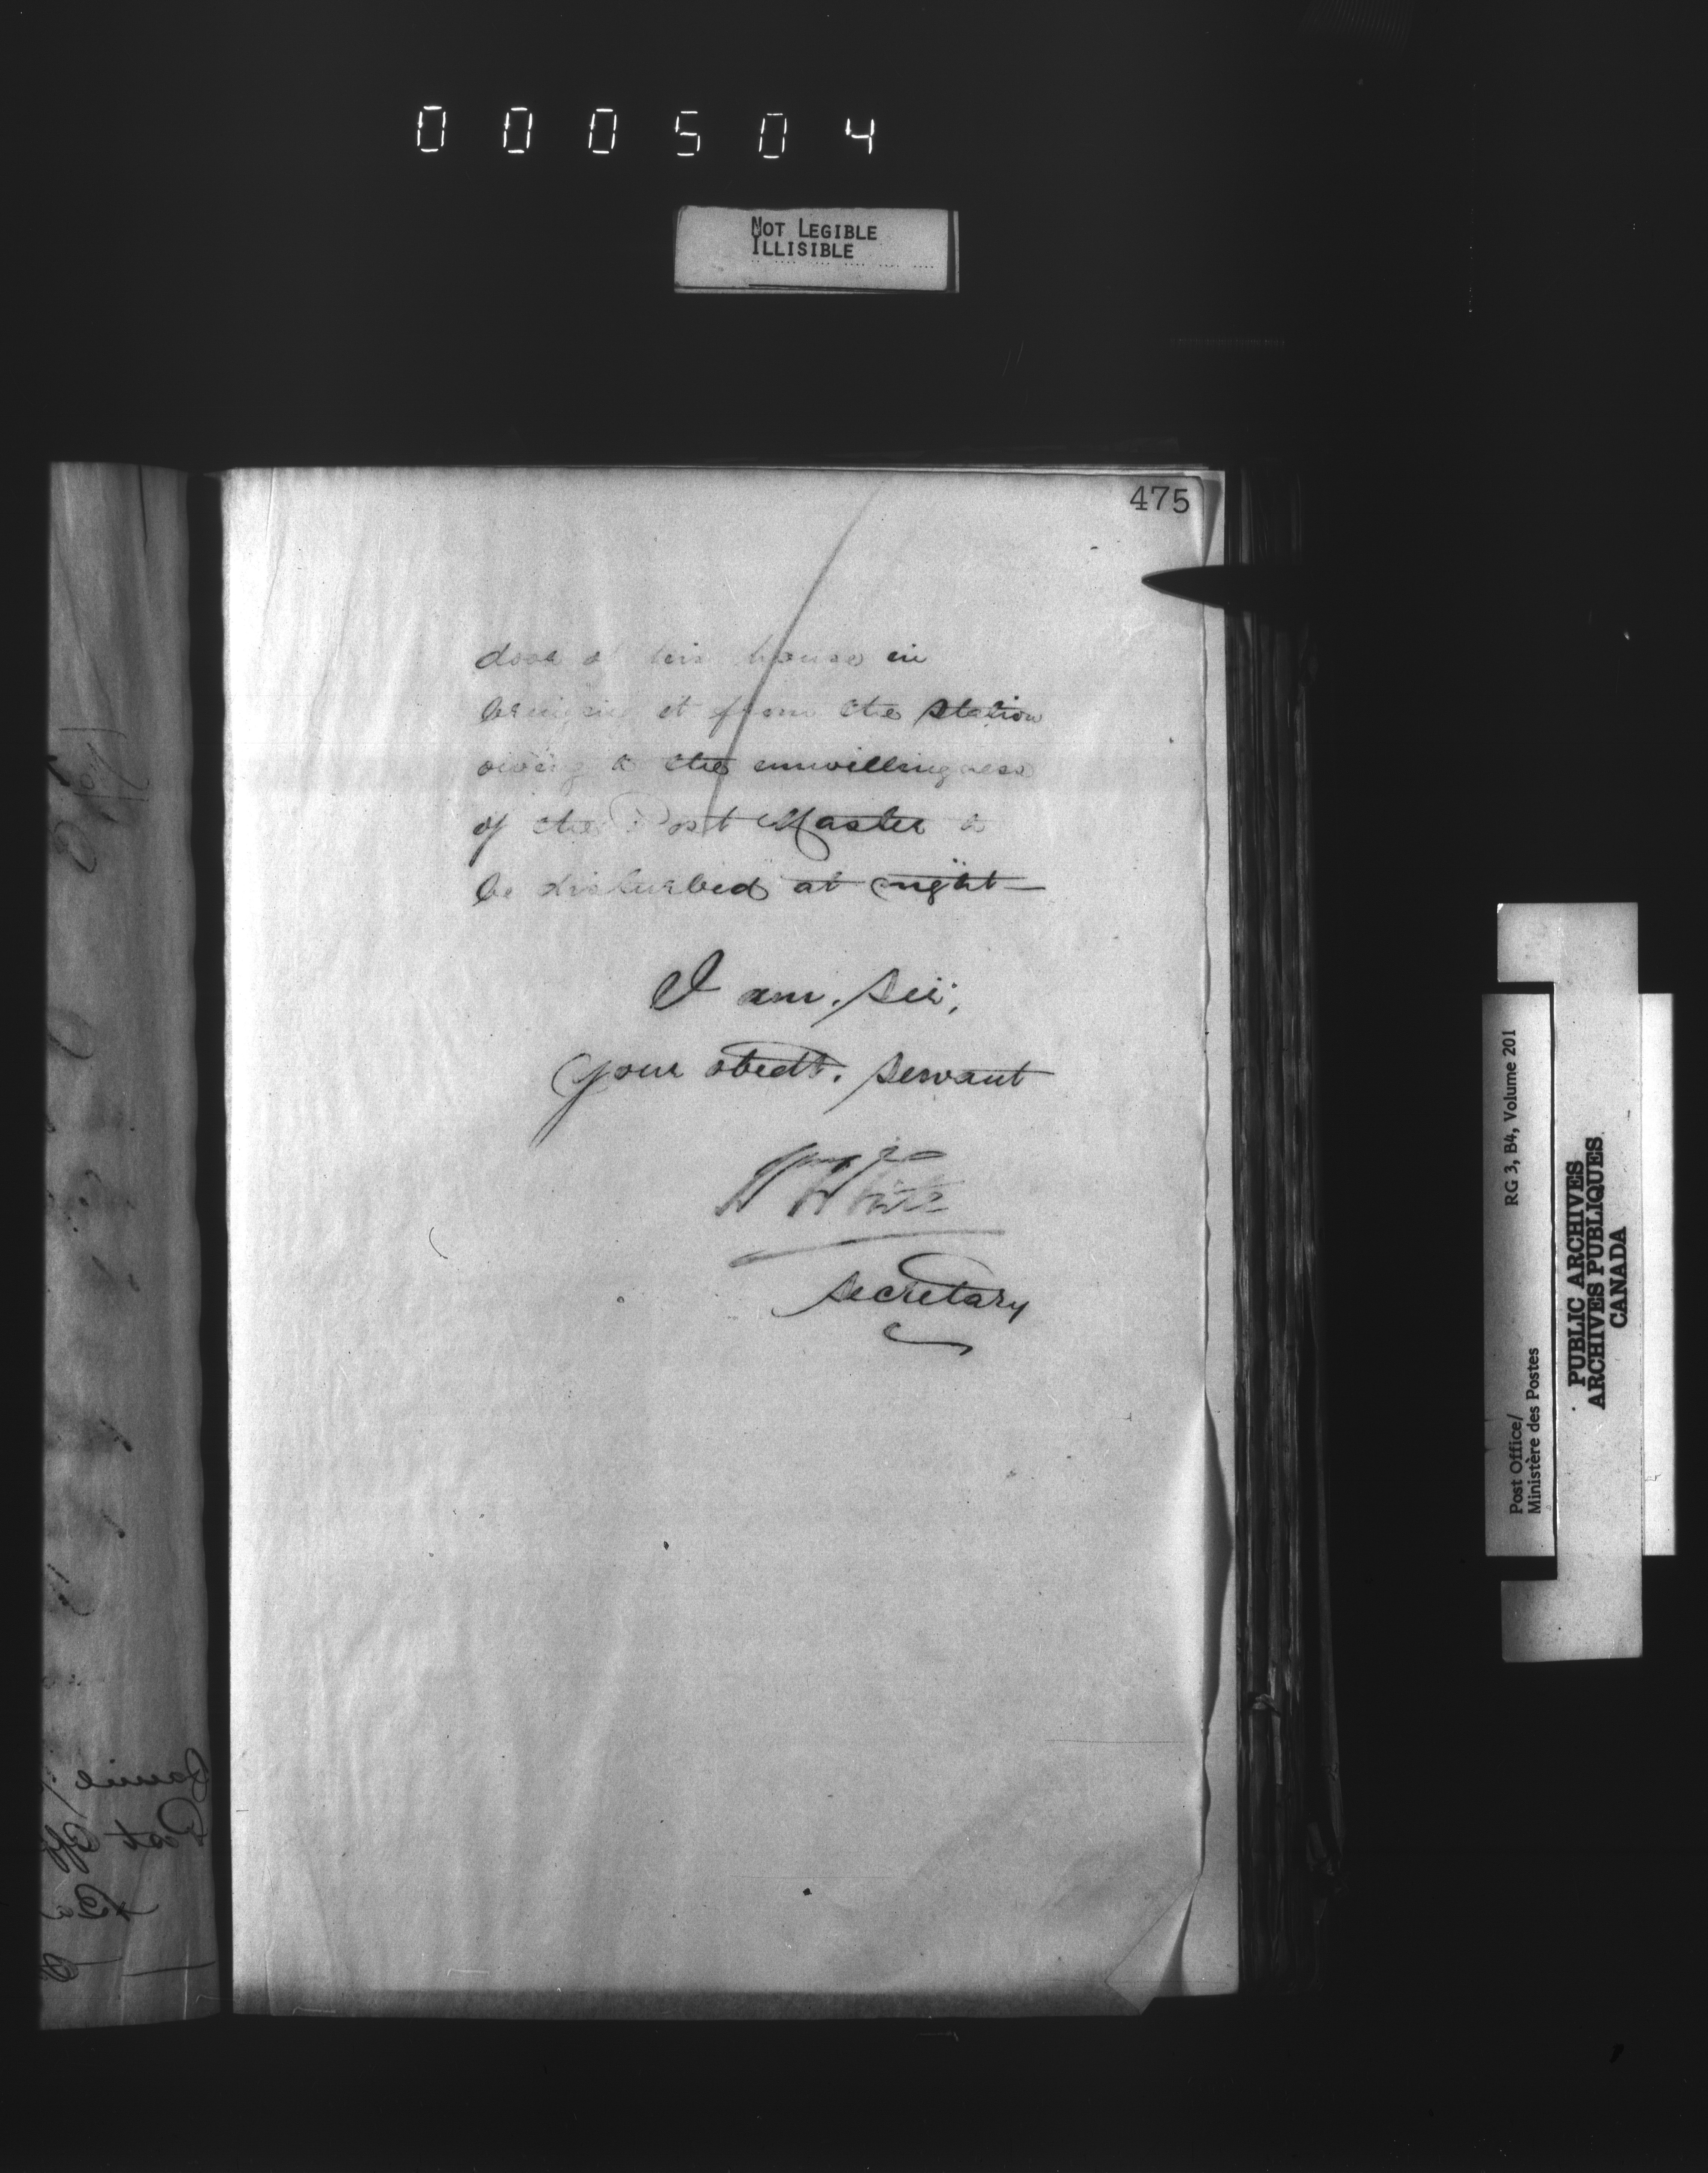 000504
NOT LEGIBLE
ILLISIBLE
475
door of his house in
bringing it from the station
owing to the unwillingness
of the Post Master to
be disturbed at night—
I am, Sir,
Your obedt. Servant
W White
Secretary
Post Office/
Ministère des Postes
RG 3, B4, Volume 201
PUBLIC ARCHIVES
ARCHIVES PUBLIQUES
CANADA